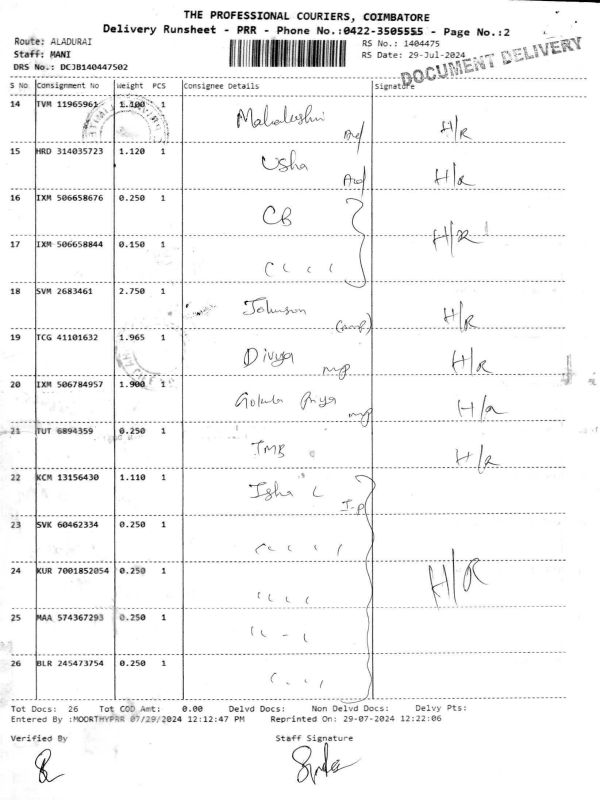 THE PROFESSIONAL COURIERS, COIMBATORE
Delivery Runsheet - PRR - Phone No.:0422-3505555 - Page No.:2
Route: ALADURAI RS No.: 1404475
Staff: MANI RS Date: 29-Jul-2024
DRS No.: DCJB140447502
DOCUMENT DELIVERY
S No Consignment No Weight PCS Consignee Details Signature
14 TVM 11965961 1.100 1 Mahalakshmi H/R
15 HRD 314035723 1.120 1 Usha H/R
16 IXM 506658676 0.250 1 CB
H/R
17 IXM 506658844 0.150 1
18 SVM 2683461 2.750 1 Johnson (mp) H/R
19 TCG 41101632 1.965 1 Divya mp H/R
20 IXM 506784957 1.900 1 Gokula Priya mp H/R
21 TUT 6894359 0.250 1 TMB H/R
22 KCM 13156430 1.110 1 Isha I.P
23 SVK 60462334 0.250 1
24 KUR 7001852054 0.250 1 H/R
25 MAA 574367293 0.250 1
26 BLR 245473754 0.250 1
Tot Docs: 26 Tot COD Amt: 0.00 Delvd Docs: Non Delvd Docs: Delvy Pts:
Entered By :MOORTHYPRR 07/29/2024 12:12:47 PM Reprinted On: 29-07-2024 12:22:06
Verified By Staff Signature